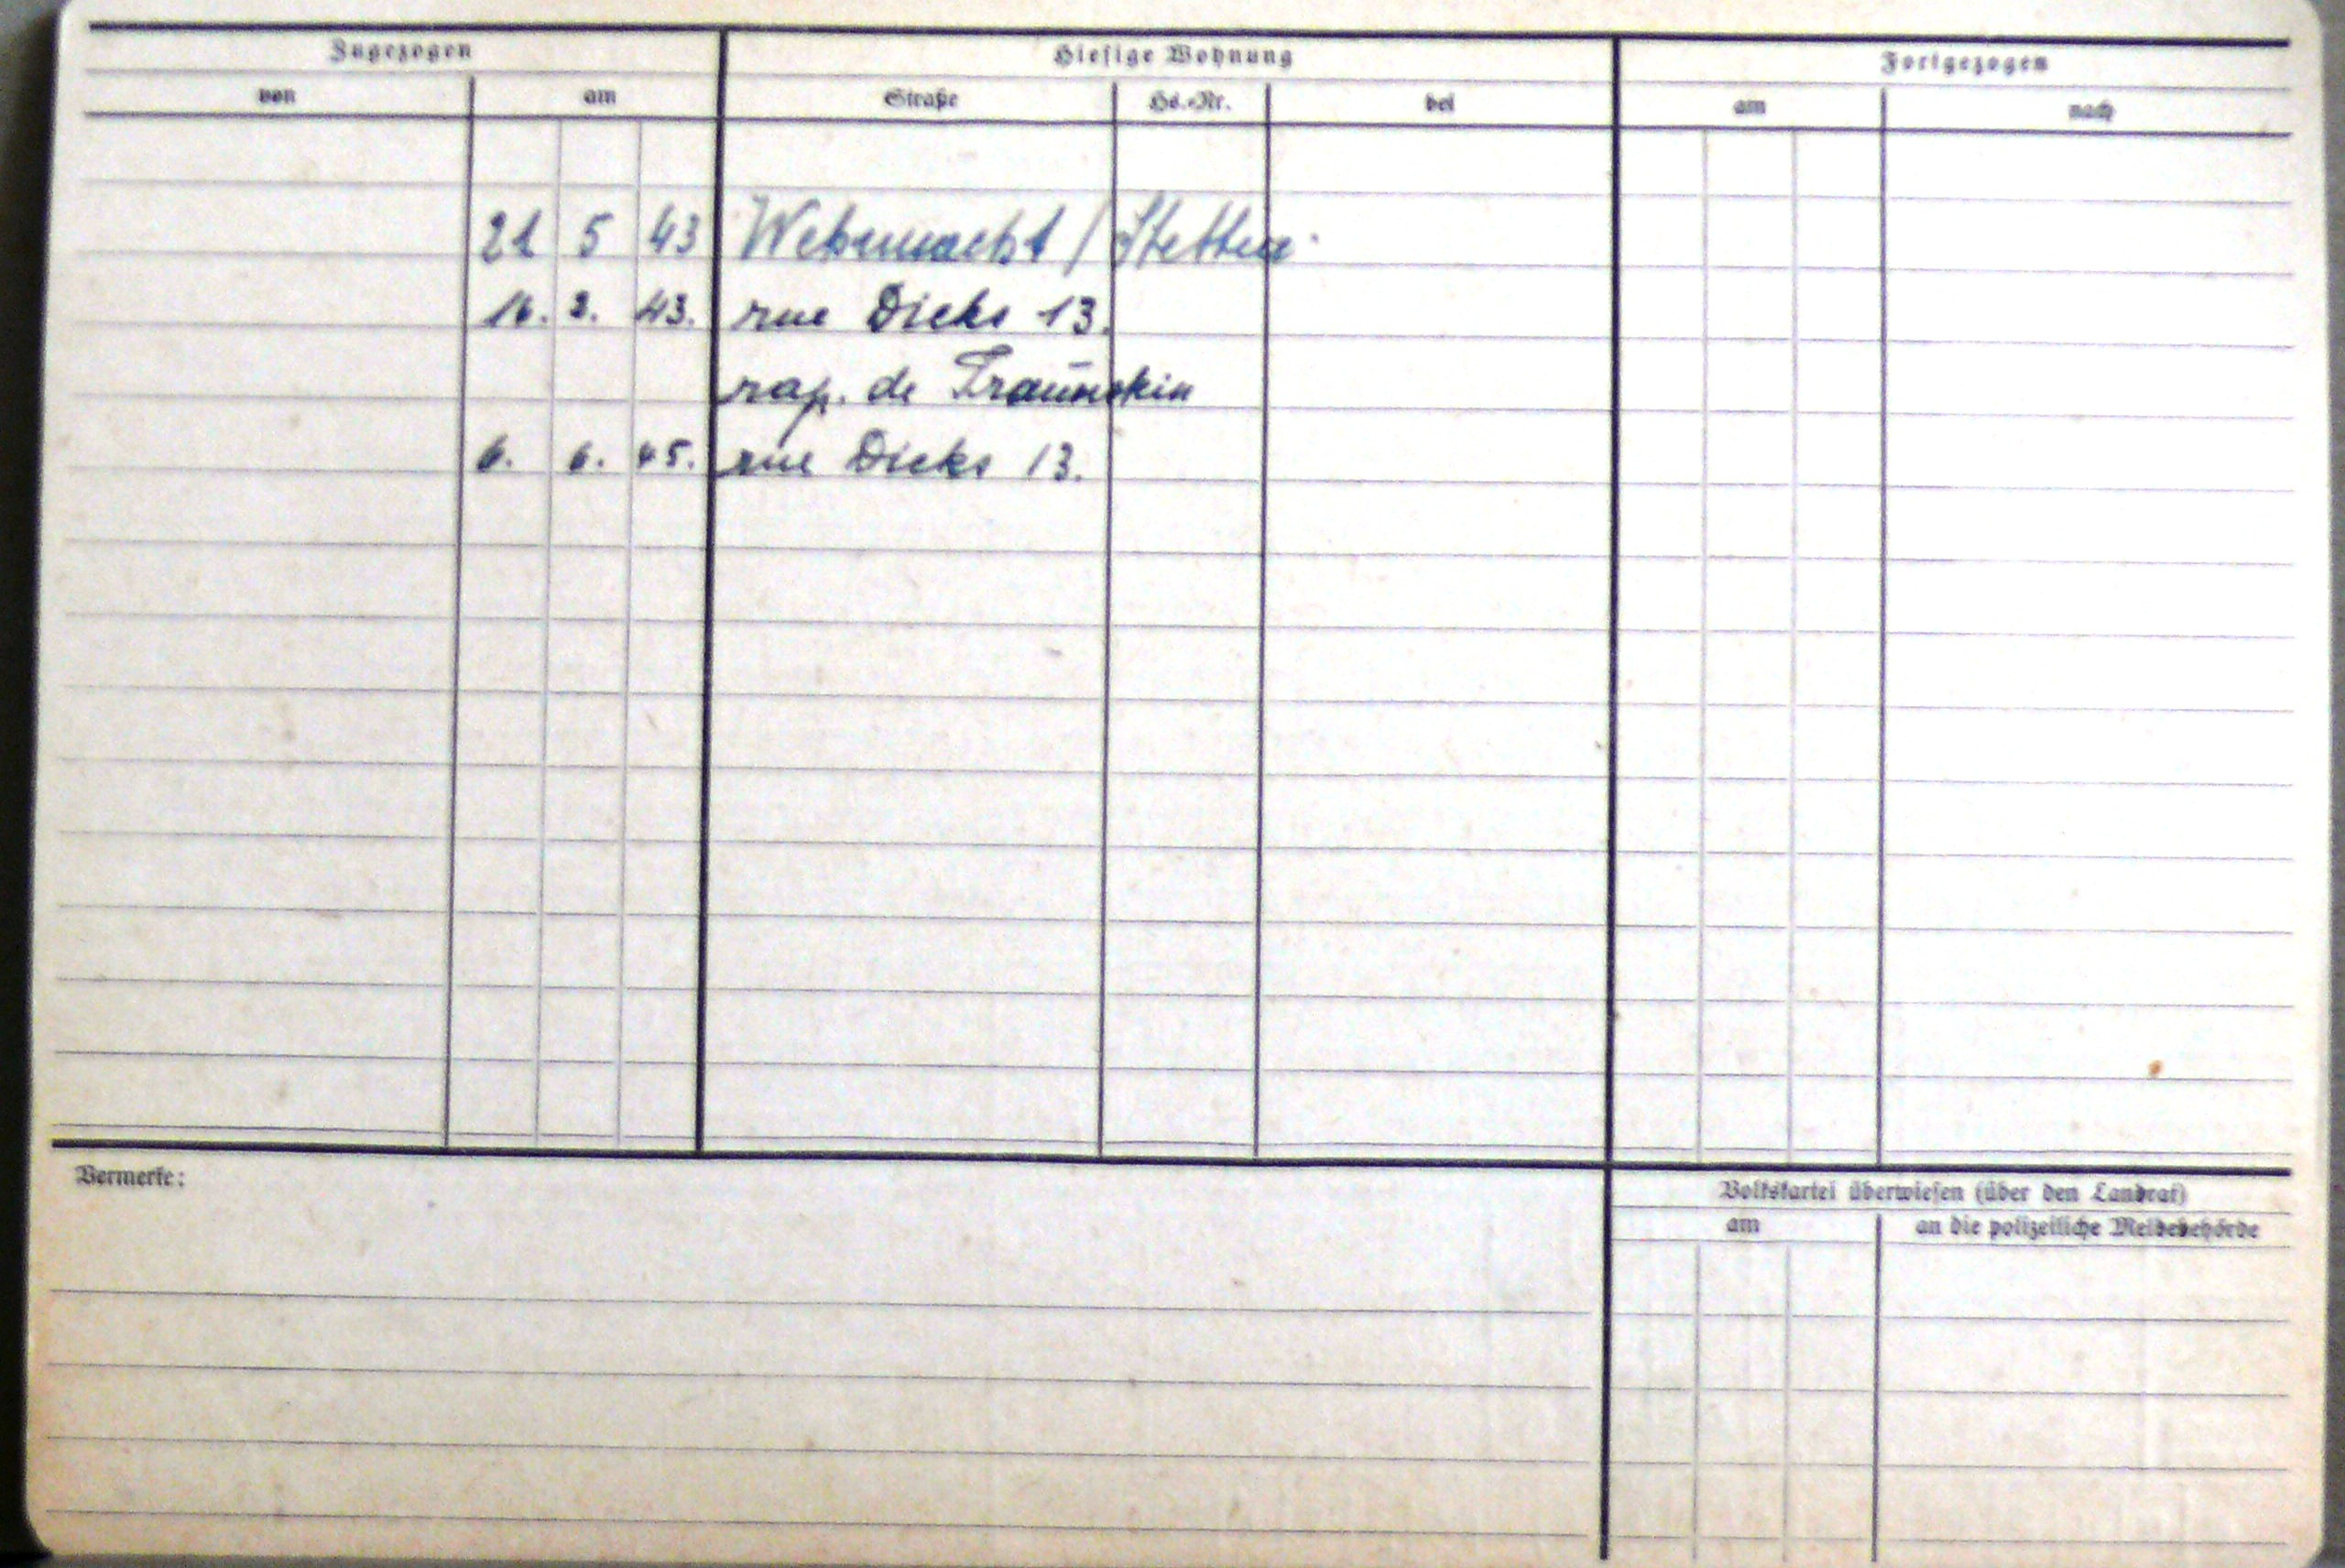 Zugezogen Hiesige Wohnung Fortgezogen
von am Straße Hs.-Nr. bei am nach
21 5 43 Wehrmacht / Stettin
16. 2. 43. rue Dicks 13.
rap. de
6. 6. 45. rue Dicks 13.
Vermerke:
Volkskartei überwiesen (über den Landrat)
am an die polizeiliche Meldebehörde